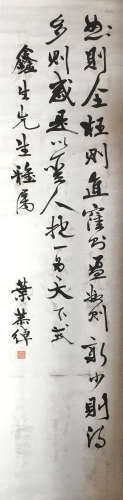 曲則全枉則直窪則盈敝則新少則得
多則惑是以聖人抱一為天下式
鑫生先生雅屬
葉恭綽